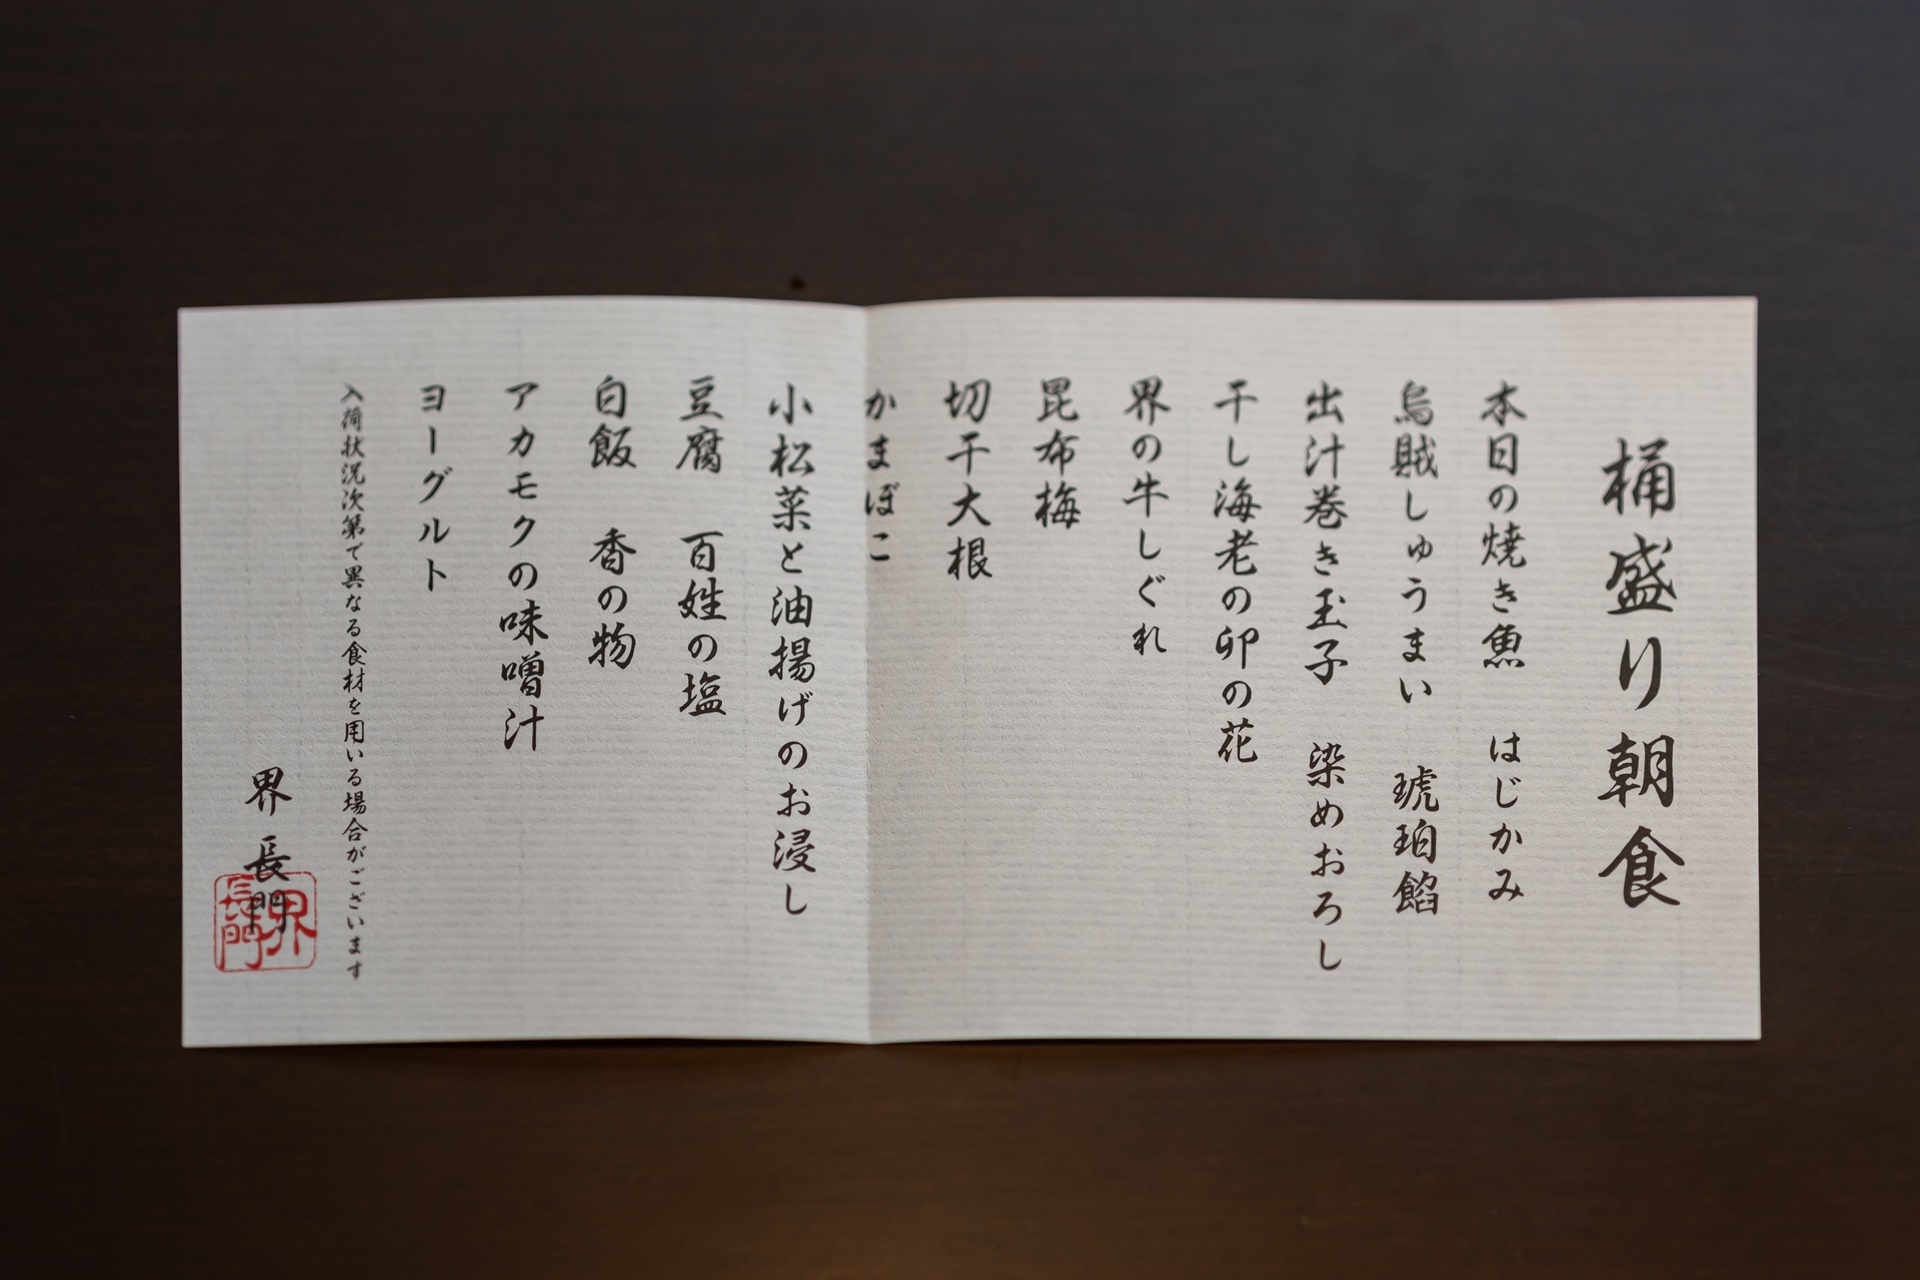 桶盛り朝食
本日の焼き魚　はじかみ
烏賊しゅうまい　琥珀餡
出汁巻き玉子　染めおろし
干し海老の卯の花
界の牛しぐれ
昆布梅
切干大根
かまぼこ
小松菜と油揚げのお浸し
豆腐　百姓の塩
白飯　香の物
アカモクの味噌汁
ヨーグルト
入荷状況次第で異なる食材を用いる場合がございます
界 長門
界長門